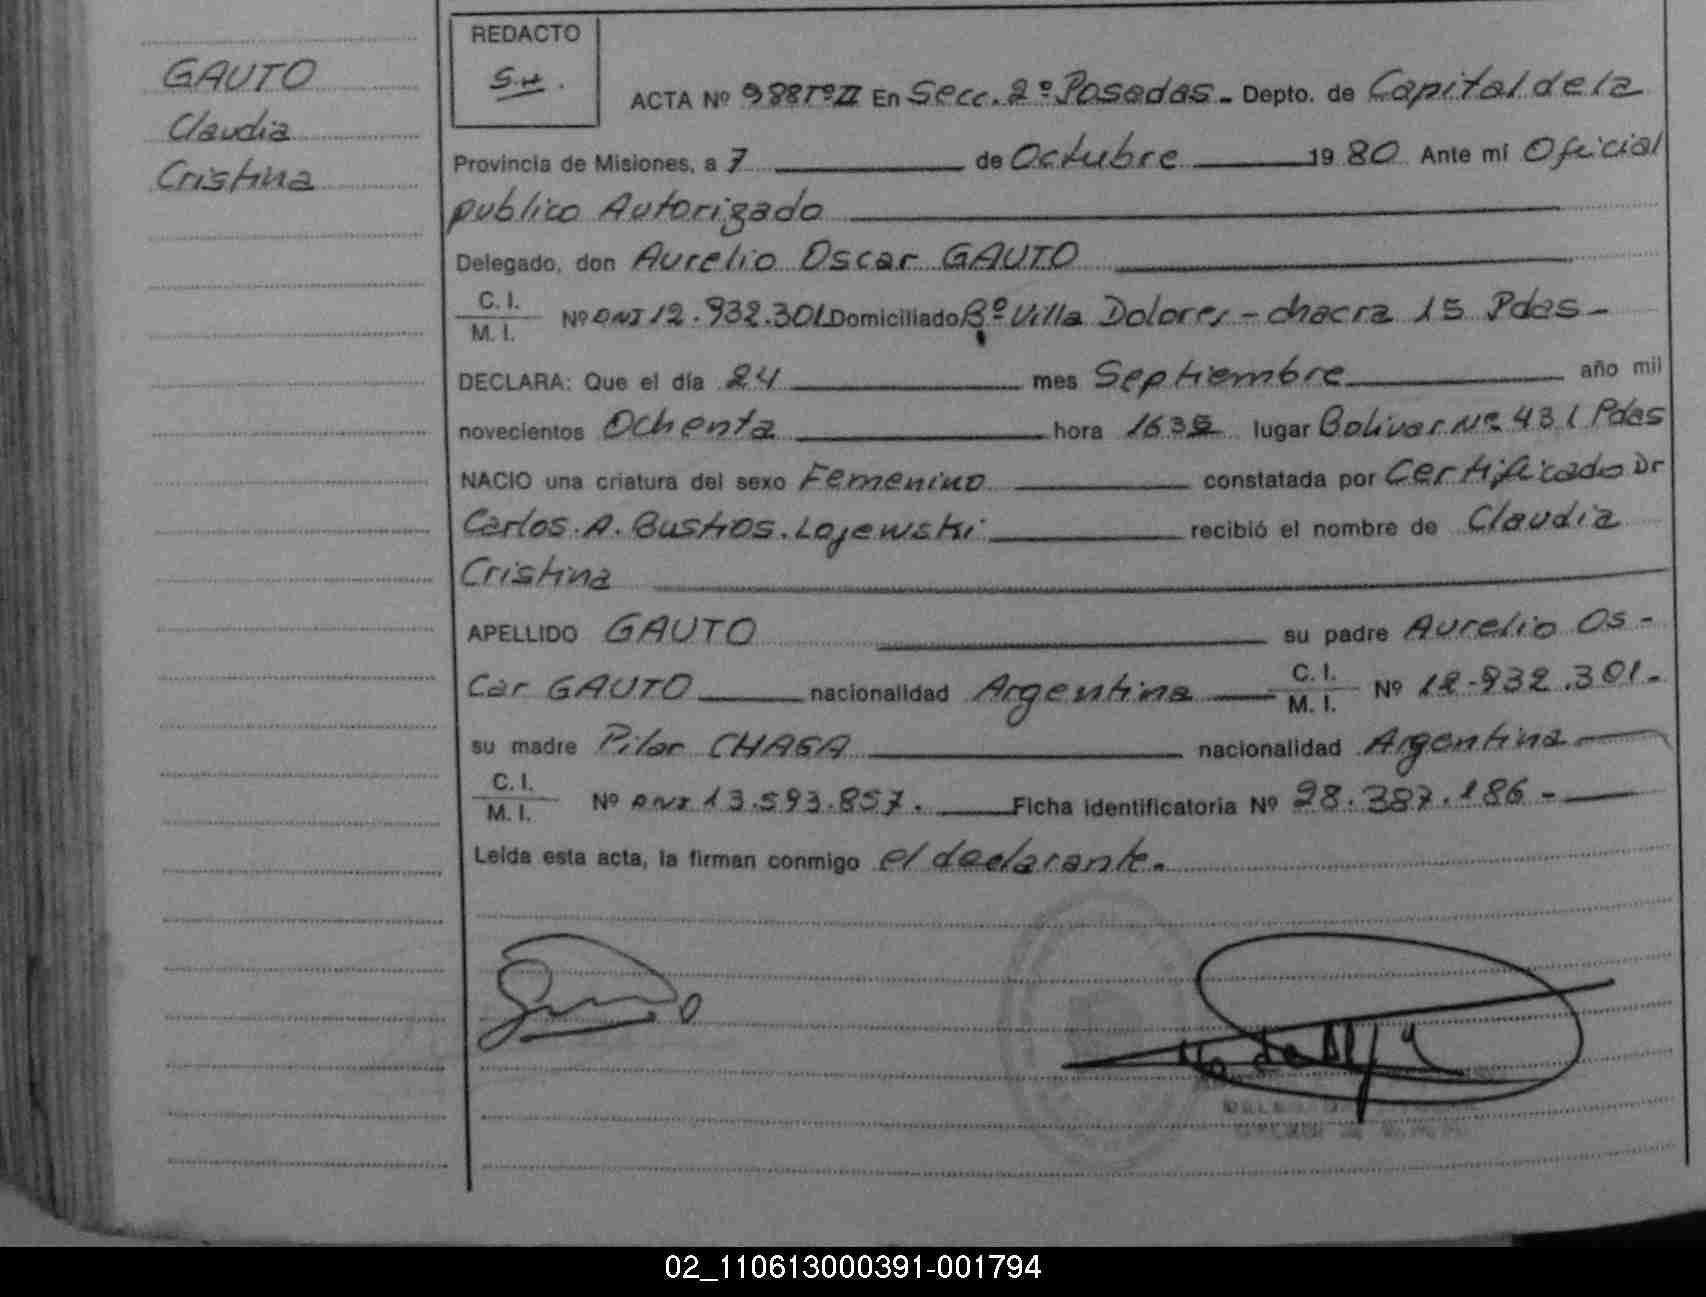 GAUTO
Claudia
Cristina
REDACTO
S.H.
ACTA Nº 988 Tº II En Secc. 2º Posadas. Depto. de Capital de la
Provincia de Misiones, a 7 de Octubre 1980 Ante mi Oficial
publico Autorizado
Delegado, don Aurelio Oscar GAUTO
C. I.
M. I. Nº DNI 12.932.301 Domiciliado Bº Villa Dolores - chacra 15 Pdas -
DECLARA: Que el día 24 mes Septiembre año mil
novecientos Ochenta hora 1635 lugar Bolivar Nº 431 Pdas
NACIO una criatura del sexo Femenino constatada por Certificado Dr
Carlos. A. Bustos. Lojewski recibió el nombre de Claudia
Cristina
APELLIDO GAUTO su padre Aurelio Os-
car GAUTO nacionalidad Argentina C. I.
M. I. Nº 12.932.301.-
su madre Pilar CHAGA nacionalidad Argentina
C. I.
M. I. Nº DNI 13.593.857. Ficha identificatoria Nº 28.387.186 -
Leída esta acta, la firman conmigo el declarante.
02_110613000391-001794